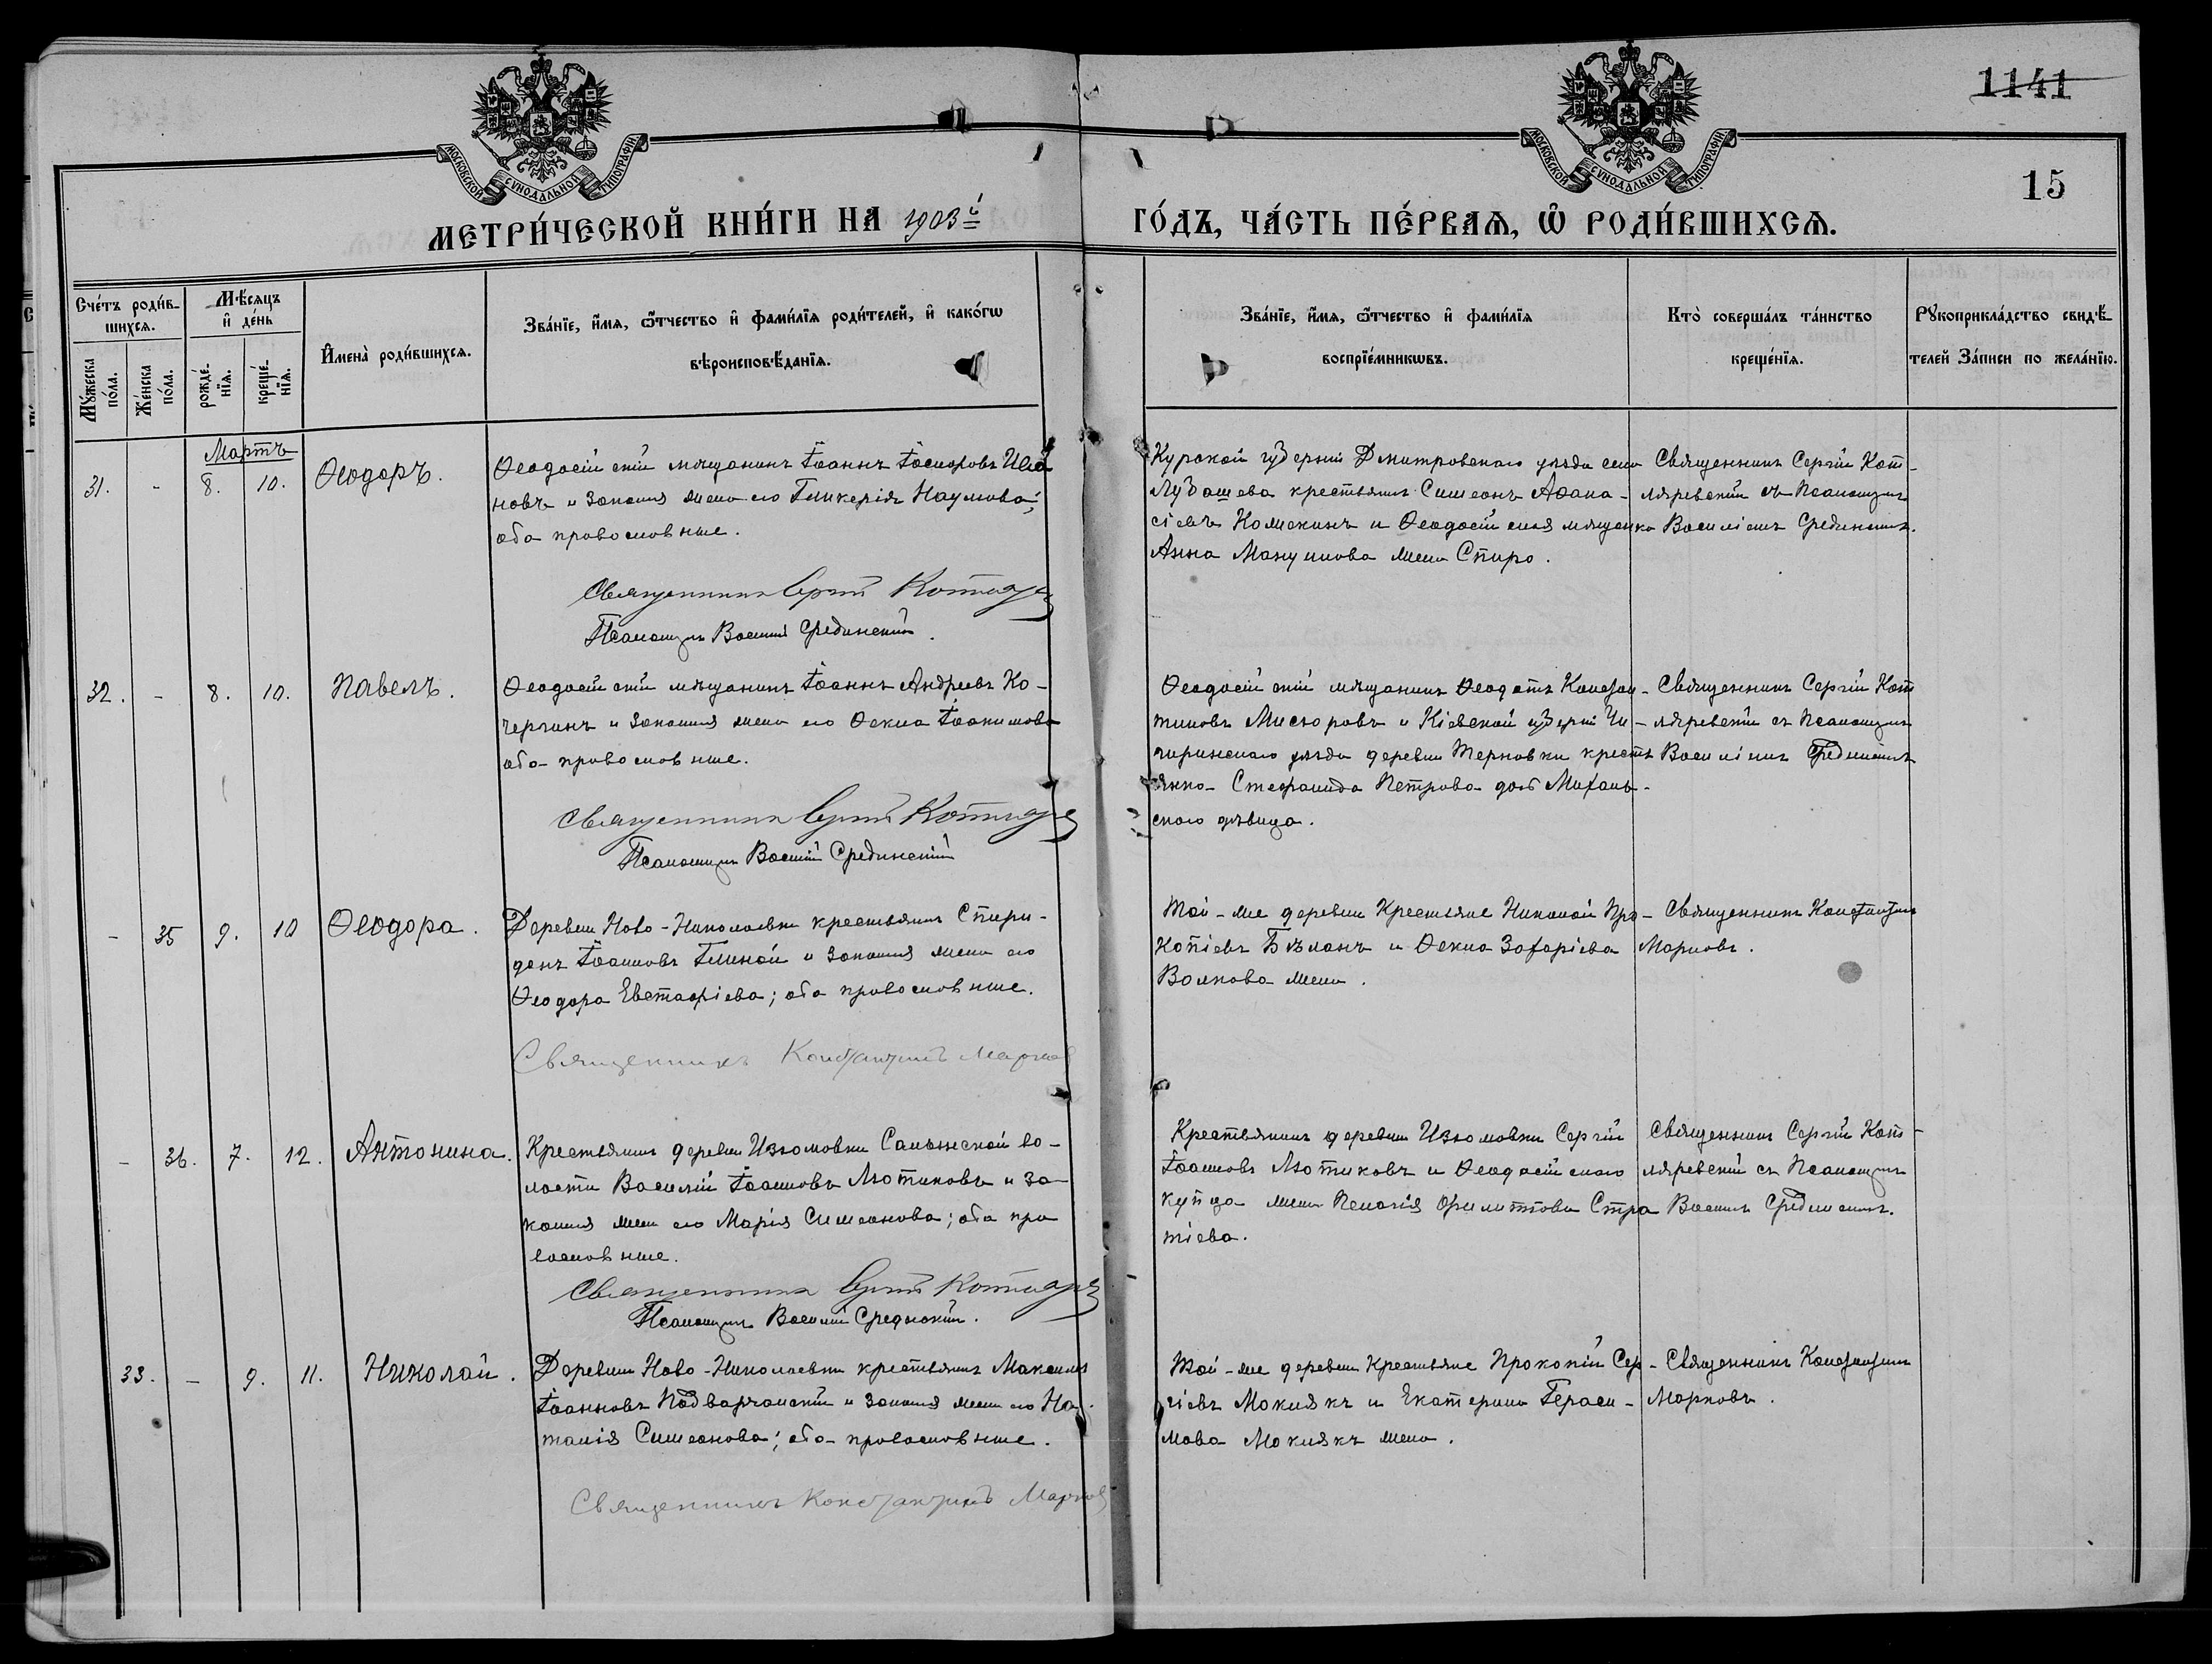 1141
15
МОСКОВСКОЙ СѴНОДАЛЬНОЙ ТИПОГРАФІИ
МОСКОВСКОЙ СѴНОДАЛЬНОЙ ТИПОГРАФІИ
МЕТРИ́ЧЕСКОЙ КНИ́ГИ НА 1903й ГО́ДЪ, ЧА́СТЬ ПЕ́РВАѦ, Ѽ РОДИ́ВШИХСѦ.
Сче́тъ роди́в-
шихсѧ.
Мꙋ́жеска
по́ла.
Же́нска
по́ла.
Мѣ́сѧцъ
и҆ де́нь
рожде́-
нїѧ.
креще́-
нїѧ.
И҆мена̀ роди́вшихсѧ.
Зва́нїе, и҆́мѧ, ѻ҆́тчество и҆ фами́лїѧ роди́телей, и҆ како́гѡ
вѣроисповѣ́данїѧ.
Зва́нїе, и҆́мѧ, ѻ҆́тчество и҆ фами́лїѧ
воспрїе́мникѡвъ.
Кто̀ соверша́лъ та́инство
креще́нїѧ.
Рꙋкоприкла́дство свидѣ́-
телей За́писи по жела́нїю.
Мартъ
31. - 8. 10. Ѳеодоръ.
Ѳеодосійскій мѣщанинъ Іоаннъ Іосифовъ Ива
новъ и законная жена его Гликерія Наумова;
оба православные.
Священникъ Сергій Котляре
Псаломщикъ Василій Срединскій.
Курской губерніи Дмитровскаго уѣзда села
Лубошева крестьянинъ Симеонъ Аѳана-
сіевъ Комекинъ и Ѳеодосійская мѣщанка
Анна Мануилова жена Спиро.
Священникъ Сергій Кот-
ляревскій съ Псаломщик.
Василіемъ Срединскимъ.
32. - 8. 10. Павелъ.
Ѳеодосійскій мѣщанинъ Іоаннъ Андреевъ Ко-
чергинъ и законная жена его Ѳекла Іоакимова
оба православные.
Священникъ Сергій Котляре
Псаломщикъ Василій Срединскій
Ѳеодосійскій мѣщанинъ Ѳеодотъ Констан-
тиновъ Мисюровъ и Кіевской губерніи Чи-
гиринскаго уѣзда деревни Терновки кресть
янка Стефанида Петрова дочь Михаль-
скаго дѣвица.
Священникъ Сергій Кот
ляревскій съ Псаломщик.
Василіемъ Срединскимъ
- 35 9. 10 Ѳеодора.
Деревни Ново-Николаевки крестьянинъ Спири-
донъ Іоанновъ Глиной и законная жена его
Ѳеодора Евстафіева; оба православные.
Священникъ Константинъ Марков
Той-же деревни Крестьяне Николай Про-
копіевъ Бѣланъ и Ѳекла Захаріева
Волкова жена.
Священникъ Константинъ
Марковъ.
- 36. 7. 12. Антонина.
Крестьянинъ деревни Изюмовки Салынской во-
лости Василій Іоанновъ Лютиковъ и за-
конная жена его Марія Симеонова; оба пра
вославные.
Священникъ Сергій Котляре
Псаломщикъ Василій Срединскій.
Крестьянинъ деревни Изюмовки Сергій
Іоанновъ Лютиковъ и Ѳеодосійскаго
купца жена Пелагія Филиппова Стра
тіева.
Священникъ Сергій Кот-
ляревскій съ Псаломщик.
Василіемъ Срединскимъ.
33. - 9. 11. Николай.
Деревни Ново-Николаевки крестьянинъ Максимъ
Іоанновъ Подварчанскій и законная жена его На-
талія Симеонова; оба православные.
Священникъ Константинъ Марков
Той-же деревни Крестьяне Прокопій Сер-
гіевъ Моклякъ и Екатерина Гераси-
мова Моклякъ жена.
Священникъ Константинъ
Марковъ.